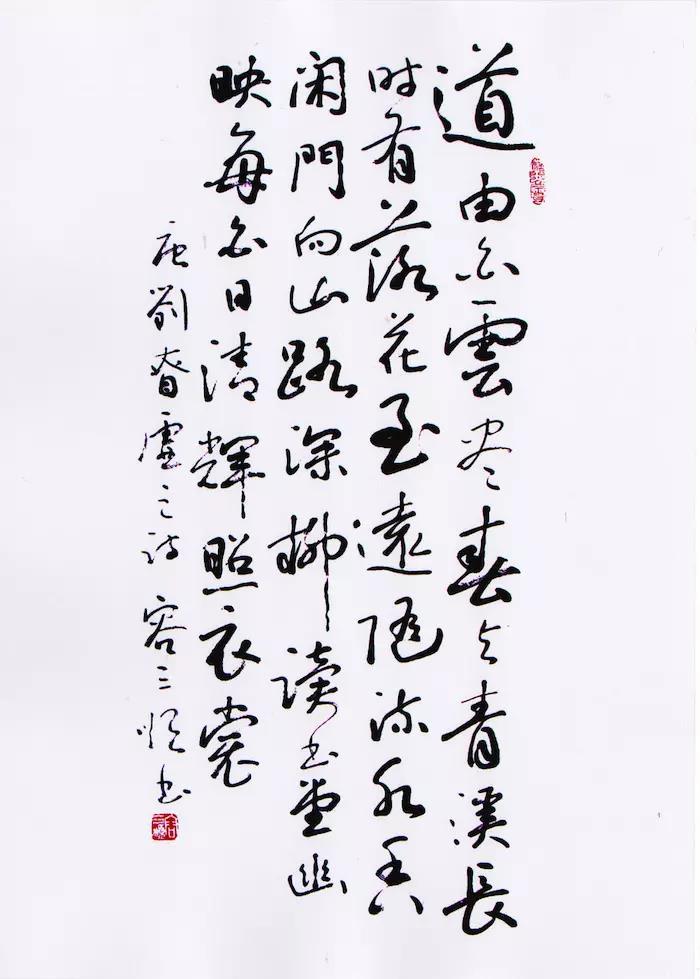 道由白雲尽春与青溪長
时有落花至遠随流水香
闲門向山路深柳读书堂幽
映每白日清輝照衣裳
唐劉昚虛之诗 容三书